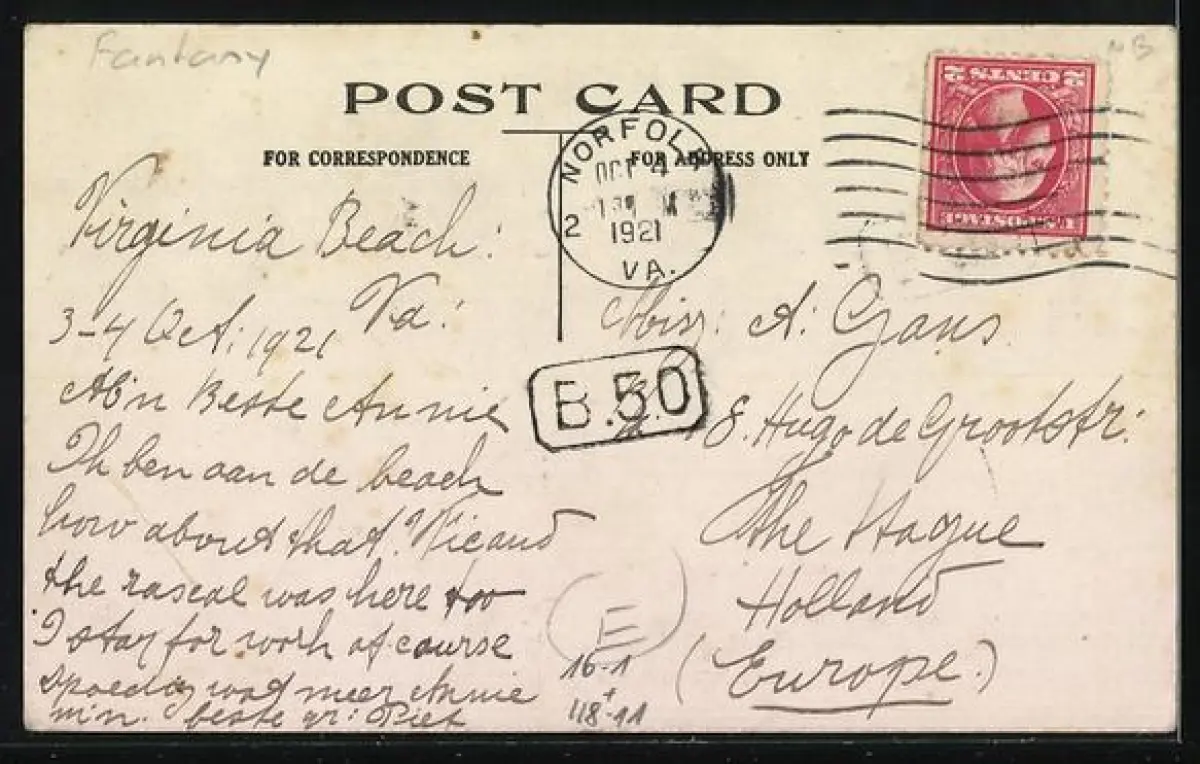 Fantasy
NB
POST CARD
FOR CORRESPONDENCE
FOR ADDRESS ONLY
NORFOLK
OCT 4
M
2
1921
VA.
2 CENTS 2
U.S. POSTAGE
Virginia Beach:
Va:
3-4 Oct: 1921
Mÿn Beste Annie
Ik ben aan de beach
how about that.
the rascal was here too
I stay for work of course
spoedig wat meer Annie
beste gr: Piet
Miss: A: Gans
B.50
E. Hugo de Grootstr:
The Hague
Holland
(Europe.)
E
16-1
+
118-11